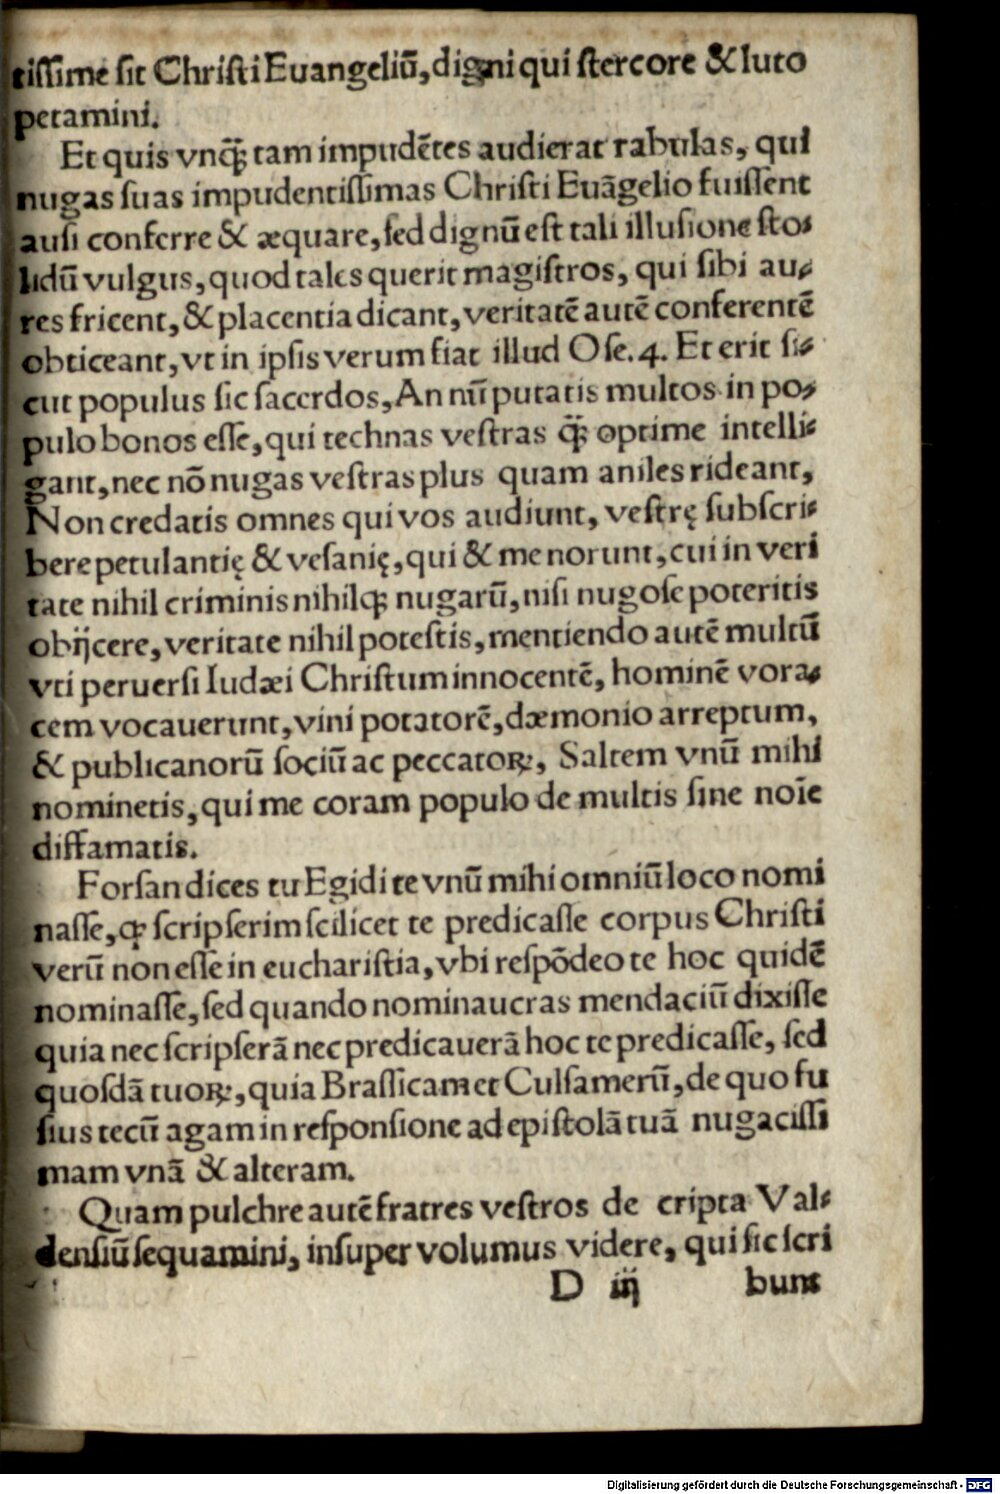 tissime sit Christi Euangeliū, digni qui stercore & luto
petamini.
Et quis vnq̃ꝫ tam impudẽtes audierat rabulas, qui
nugas suas impudentissimas Christi Euãgelio fuissent
ausi conferre & æquare, sed dignū est tali illusione sto⸗
lidū vulgus, quod tales querit magistros, qui sibi au⸗
res fricent, & placentia dicant, veritatẽ autẽ conferentẽ
obticeant, vt in ipsis verum fiat illud Ose. 4. Et erit si⸗
cut populus sic sacerdos, An nū putatis multos in po⸗
pulo bonos esse, qui technas vestras q̃ꝫ optime intelli⸗
gant, nec nõ nugas vestras plus quam aniles rideant,
Non credatis omnes qui vos audiunt, vestrę subscri⸗
bere petulantię & vesanię, qui & me norunt, cui in veri
tate nihil criminis nihilqꝫ nugarū, nisi nugose poteritis
obijcere, veritate nihil potestis, mentiendo autẽ multū
vti peruersi Iudæi Christum innocentẽ, hominẽ vora⸗
cem vocauerunt, vini potatorẽ, dæmonio arreptum,
& publicanorū sociū ac peccatoꝝ, Saltem vnū mihi
nominetis, qui me coram populo de multis sine noĩe
diffamatis.
Forsan dices tu Egidi te vnū mihi omniū loco nomi
nasse, ꝙ scripserim scilicet te predicasse corpus Christi
verū non esse in eucharistia, vbi respõdeo te hoc quidẽ
nominasse, sed quando nominaueras mendaciū dixisse
quia nec scripserã nec predicauerã hoc te predicasse, sed
quosdã tuoꝝ, quia Brassicam et Culsamerū, de quo fu
sius tecū agam in responsione ad epistolã tuã nugacissi
mam vnã & alteram.
Quam pulchre autẽ fratres vestros de cripta Val⸗
densiū sequamini, insuper volumus videre, qui sic scri
D iij bunt
Digitalisierung gefördert durch die Deutsche Forschungsgemeinschaft - DFG